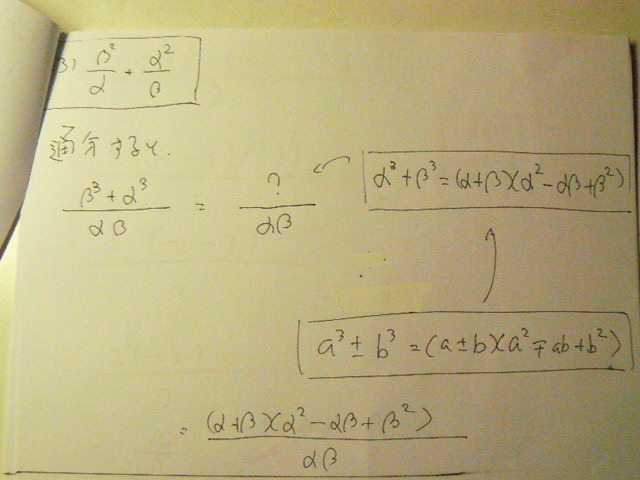 3) β²/α + α²/β
通分すると.
(β³+α³)/(αβ) = ?/(αβ)
α³+β³=(α+β)(α²-αβ+β²)
a³±b³=(a±b)(a²∓ab+b²)
= (α+β)(α²-αβ+β²)/(αβ)